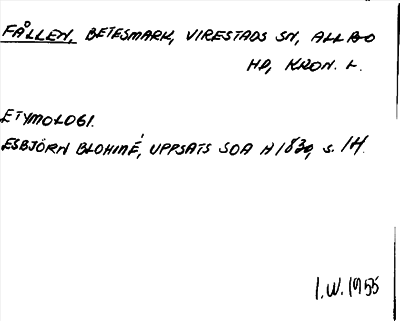 FÅLLEN, BETESMARK, VIRESTADS SN, ALLBO
HD, KRON. L.
ETYMOLOGI.
ESBJÖRN BLOHMÉ, UPPSATS SOA H 1830, s. 14.
I.W. 1955